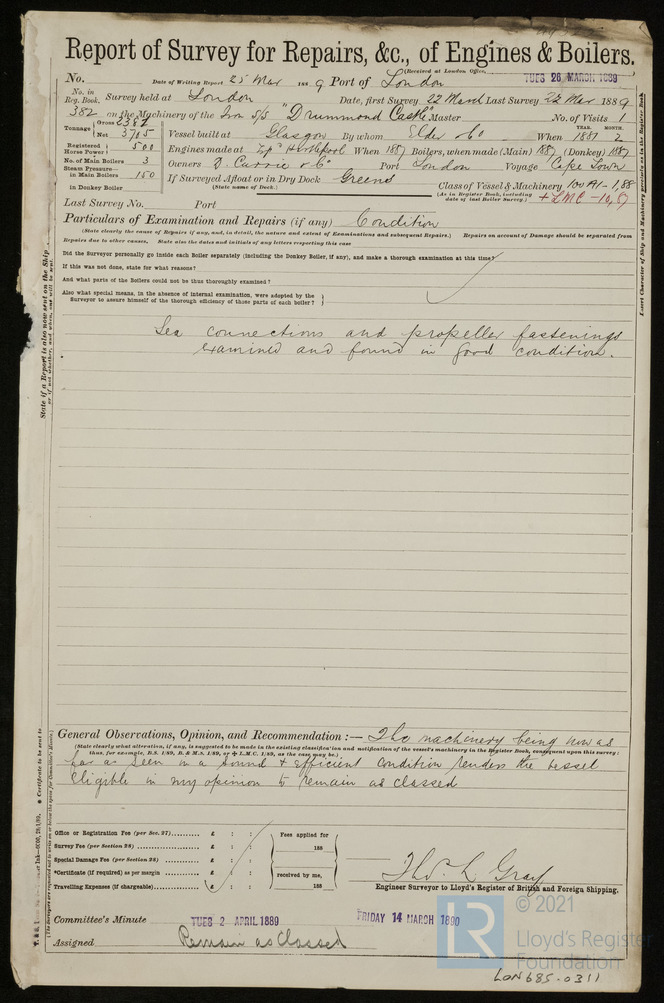 Report of Survey for Repairs, &c., of Engines & Boilers.
(Received at London Office, TUES 26 MARCH 1889
No. Date of Writing Report 25 Mar 188 9 Port of London
No. in Reg. Book. Survey held at London Date, first Survey 22 March Last Survey 22 Mar 1889
382 on the Machinery of the Iron S/S "Drummond Castle" Master No. of Visits 1
Tonnage Gross 2387
Net 3705 Vessel built at Glasgow By whom Elder & Co When YEAR. 1881 MONTH. 2
Registered Horse Power 500 Engines made at Hartlepool When 1887 Boilers, when made (Main) 1887 (Donkey) 1887
No. of Main Boilers 3 Owners D. Currie & Co Port London Voyage Cape Town
Steam Pressure— in Main Boilers 150 If Surveyed Afloat or in Dry Dock Greens
(State name of Dock.)
Class of Vessel & Machinery 100 A1 - 1,88
(As in Register Book, including date of last Boiler Survey.) + LMC - 10,87
in Donkey Boiler
Last Survey No. Port
Particulars of Examination and Repairs (if any) Condition
(State clearly the cause of Repairs if any, and, in detail, the nature and extent of Examinations and subsequent Repairs.) Repairs on account of Damage should be separated from
Repairs due to other causes. State also the dates and initials of any letters respecting this case
Did the Surveyor personally go inside each Boiler separately (including the Donkey Boiler, if any), and make a thorough examination at this time?
If this was not done, state for what reasons?
And what parts of the Boilers could not be thus thoroughly examined?
Also what special means, in the absence of internal examination, were adopted by the
Surveyor to assure himself of the thorough efficiency of those parts of each boiler?
Sea connections and propeller fastenings
examined and found in good condition.
General Observations, Opinion, and Recommendation :— The machinery being now as
(State clearly what alteration, if any, is suggested to be made in the existing classification and notification of the vessel's machinery in the Register Book, consequent upon this survey:
thus, for example, B.S. 1/89, B. & M.S. 1/89, or + L.M.C. 1/89, as the case may be.)
far as seen in a sound & efficient condition renders the vessel
eligible in my opinion to remain as classed
Office or Registration Fee (per Sec. 27) £ : :
Survey Fee (per Section 28) £ : :
Special Damage Fee (per Section 28) £ : :
*Certificate (if required) as per margin £ : :
Travelling Expenses (if chargeable) £ : :
Fees applied for
188
received by me,
188
Thos. L Gray
Engineer Surveyor to Lloyd's Register of British and Foreign Shipping.
Committee's Minute TUES 2 APRIL 1889 FRIDAY 14 MARCH 1890
Assigned Remain as Classed
State if a Report is also now sent on the Ship
Insert Character of Ship and Machinery precisely as in the Register Book
* Certificate to be sent to
LR
© 2021
Lloyd's Register
Foundation
LON685-0311